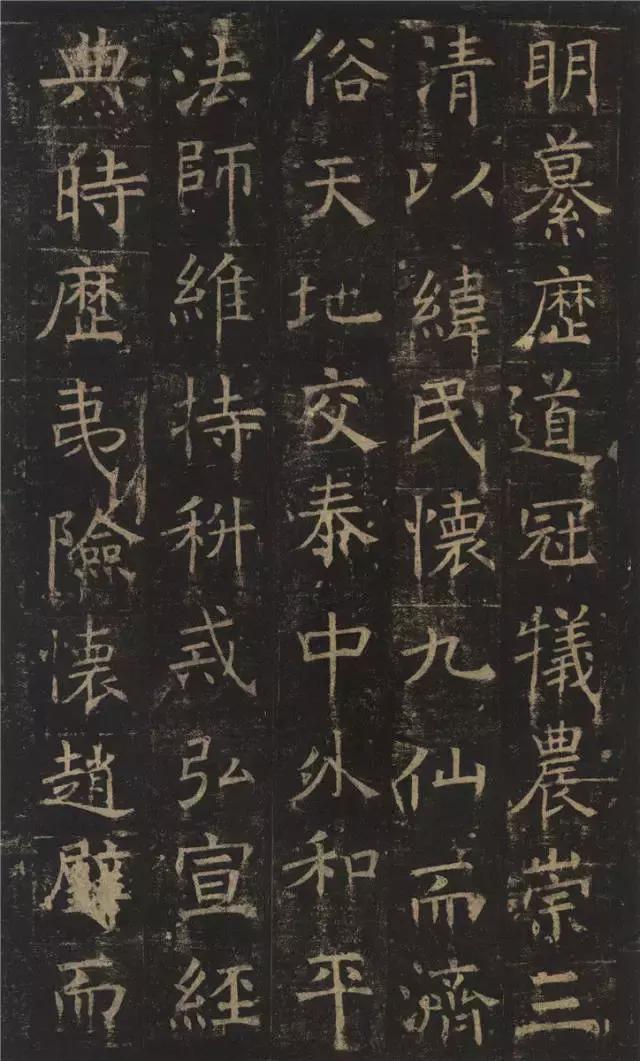 明纂歷道冠犧農崇三
清以緯民懷九仙而濟
俗天地交泰中外和平
法師維持科戒弘宣經
典時歷夷險懷趙璧而